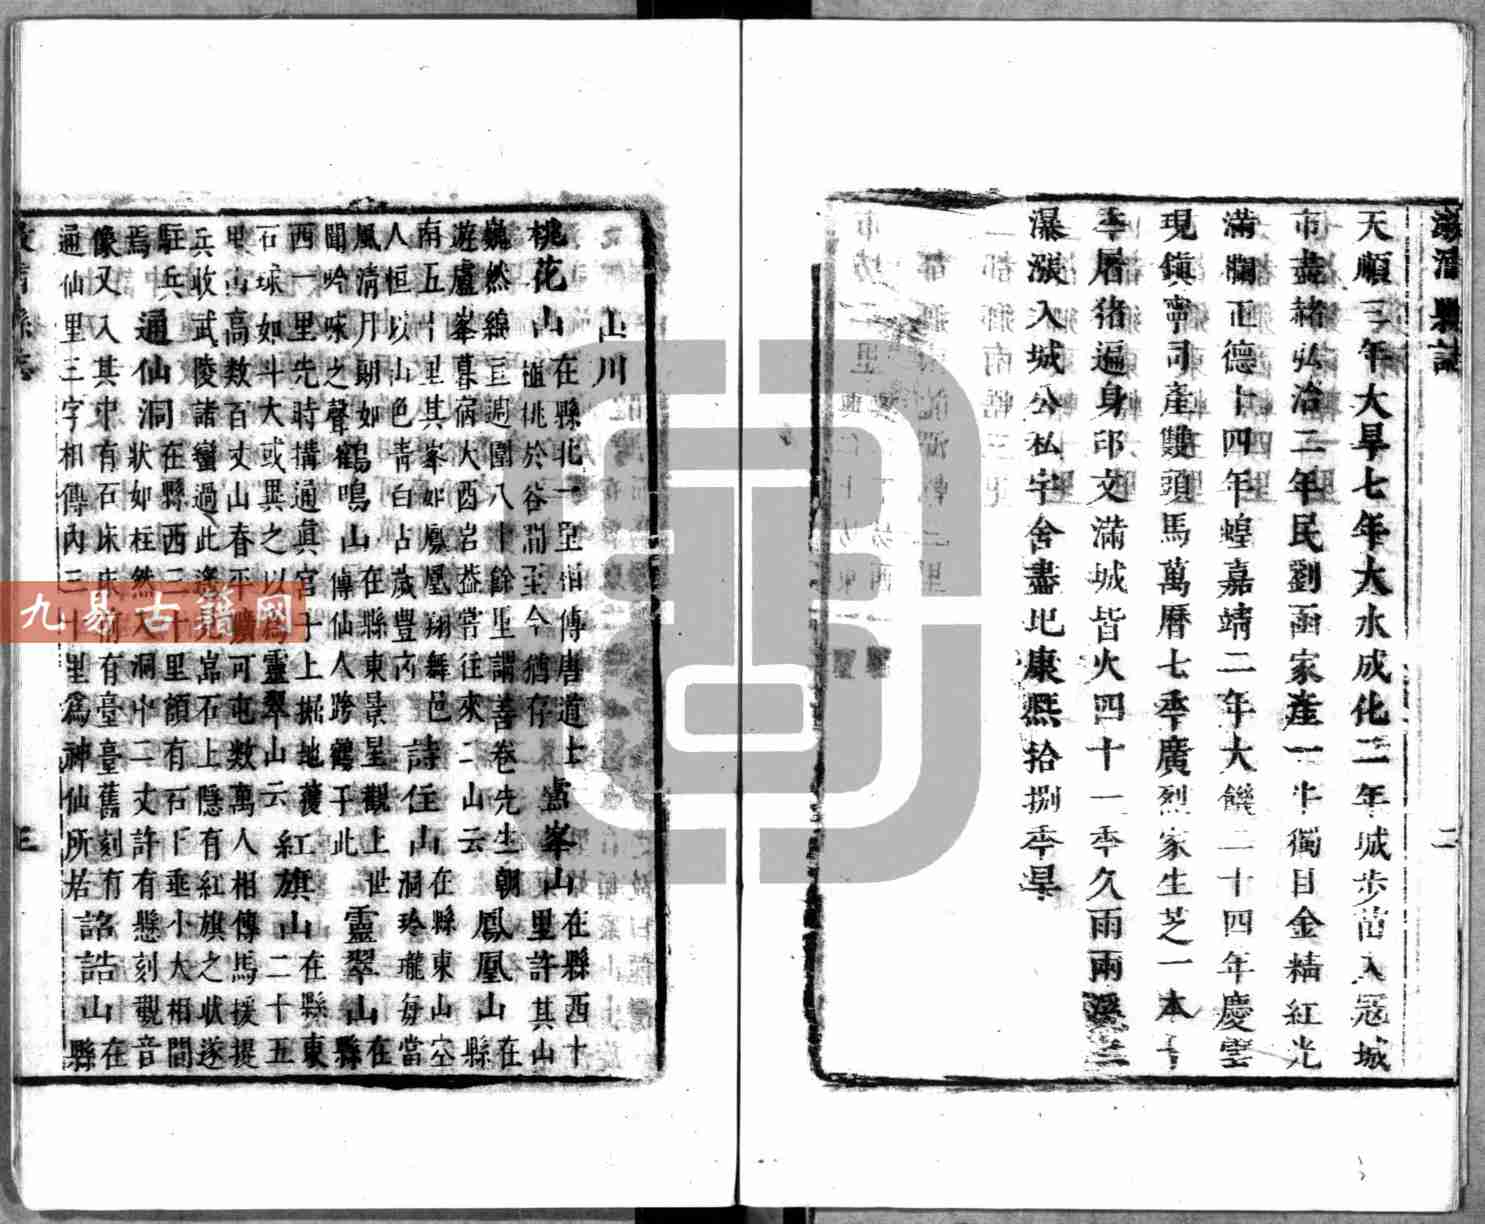 漵浦縣誌
二
天順三年大旱七年大水成化二年城步苗入冦城
市盡赭弘治二年民劉函家產一牛獨目金精紅光
滿欄正德十四年蝗嘉靖二年大饑二十四年慶雲
現鎮寧司產雙頭馬萬曆七季廣烈家生芝一本十
季屠猪遍身印文滿城皆火四十一季久雨雨溪
瀑漲入城公私宇舍盡圯康熙拾捌季旱
山川
桃花山在縣北一里相傳唐道士
植桃於谷澗至今猶存
盧峯山在縣西十
里許其山
巍然綿亘週圍八十餘里謂善卷先生朝
遊盧峯暮宿大酉岩葢常往來二山云
鳳凰山在
縣
南五十里其峯如鳳凰翔舞邑
人恒以山色青白占歲豐
詩
山在縣東山空
洞玲瓏每當
風清月朗如
聞吟咏之聲
鶴鳴山在縣東景呈觀上世
傳仙人跨鶴于此
靈翠山在
縣
西一里先時搆通真宮于上掘地獲
石球如斗大或異之以為靈翠山云
紅旗山在縣東
二十五
里山高數百丈山春平曠可屯數萬人相傳馬援提
兵收武陵諸蠻過此遙見嵓石上隱有紅旗之狀遂
駐兵
焉
通仙洞在縣西三十里顏有石下垂小大相間
狀如柱然入洞中二丈許有懸刻觀音
像又入其中有石床床前有臺臺舊刻有
通仙里三字相傳內三十里為神仙所居
誥山在
縣
漵浦縣志
三
九易古籍网